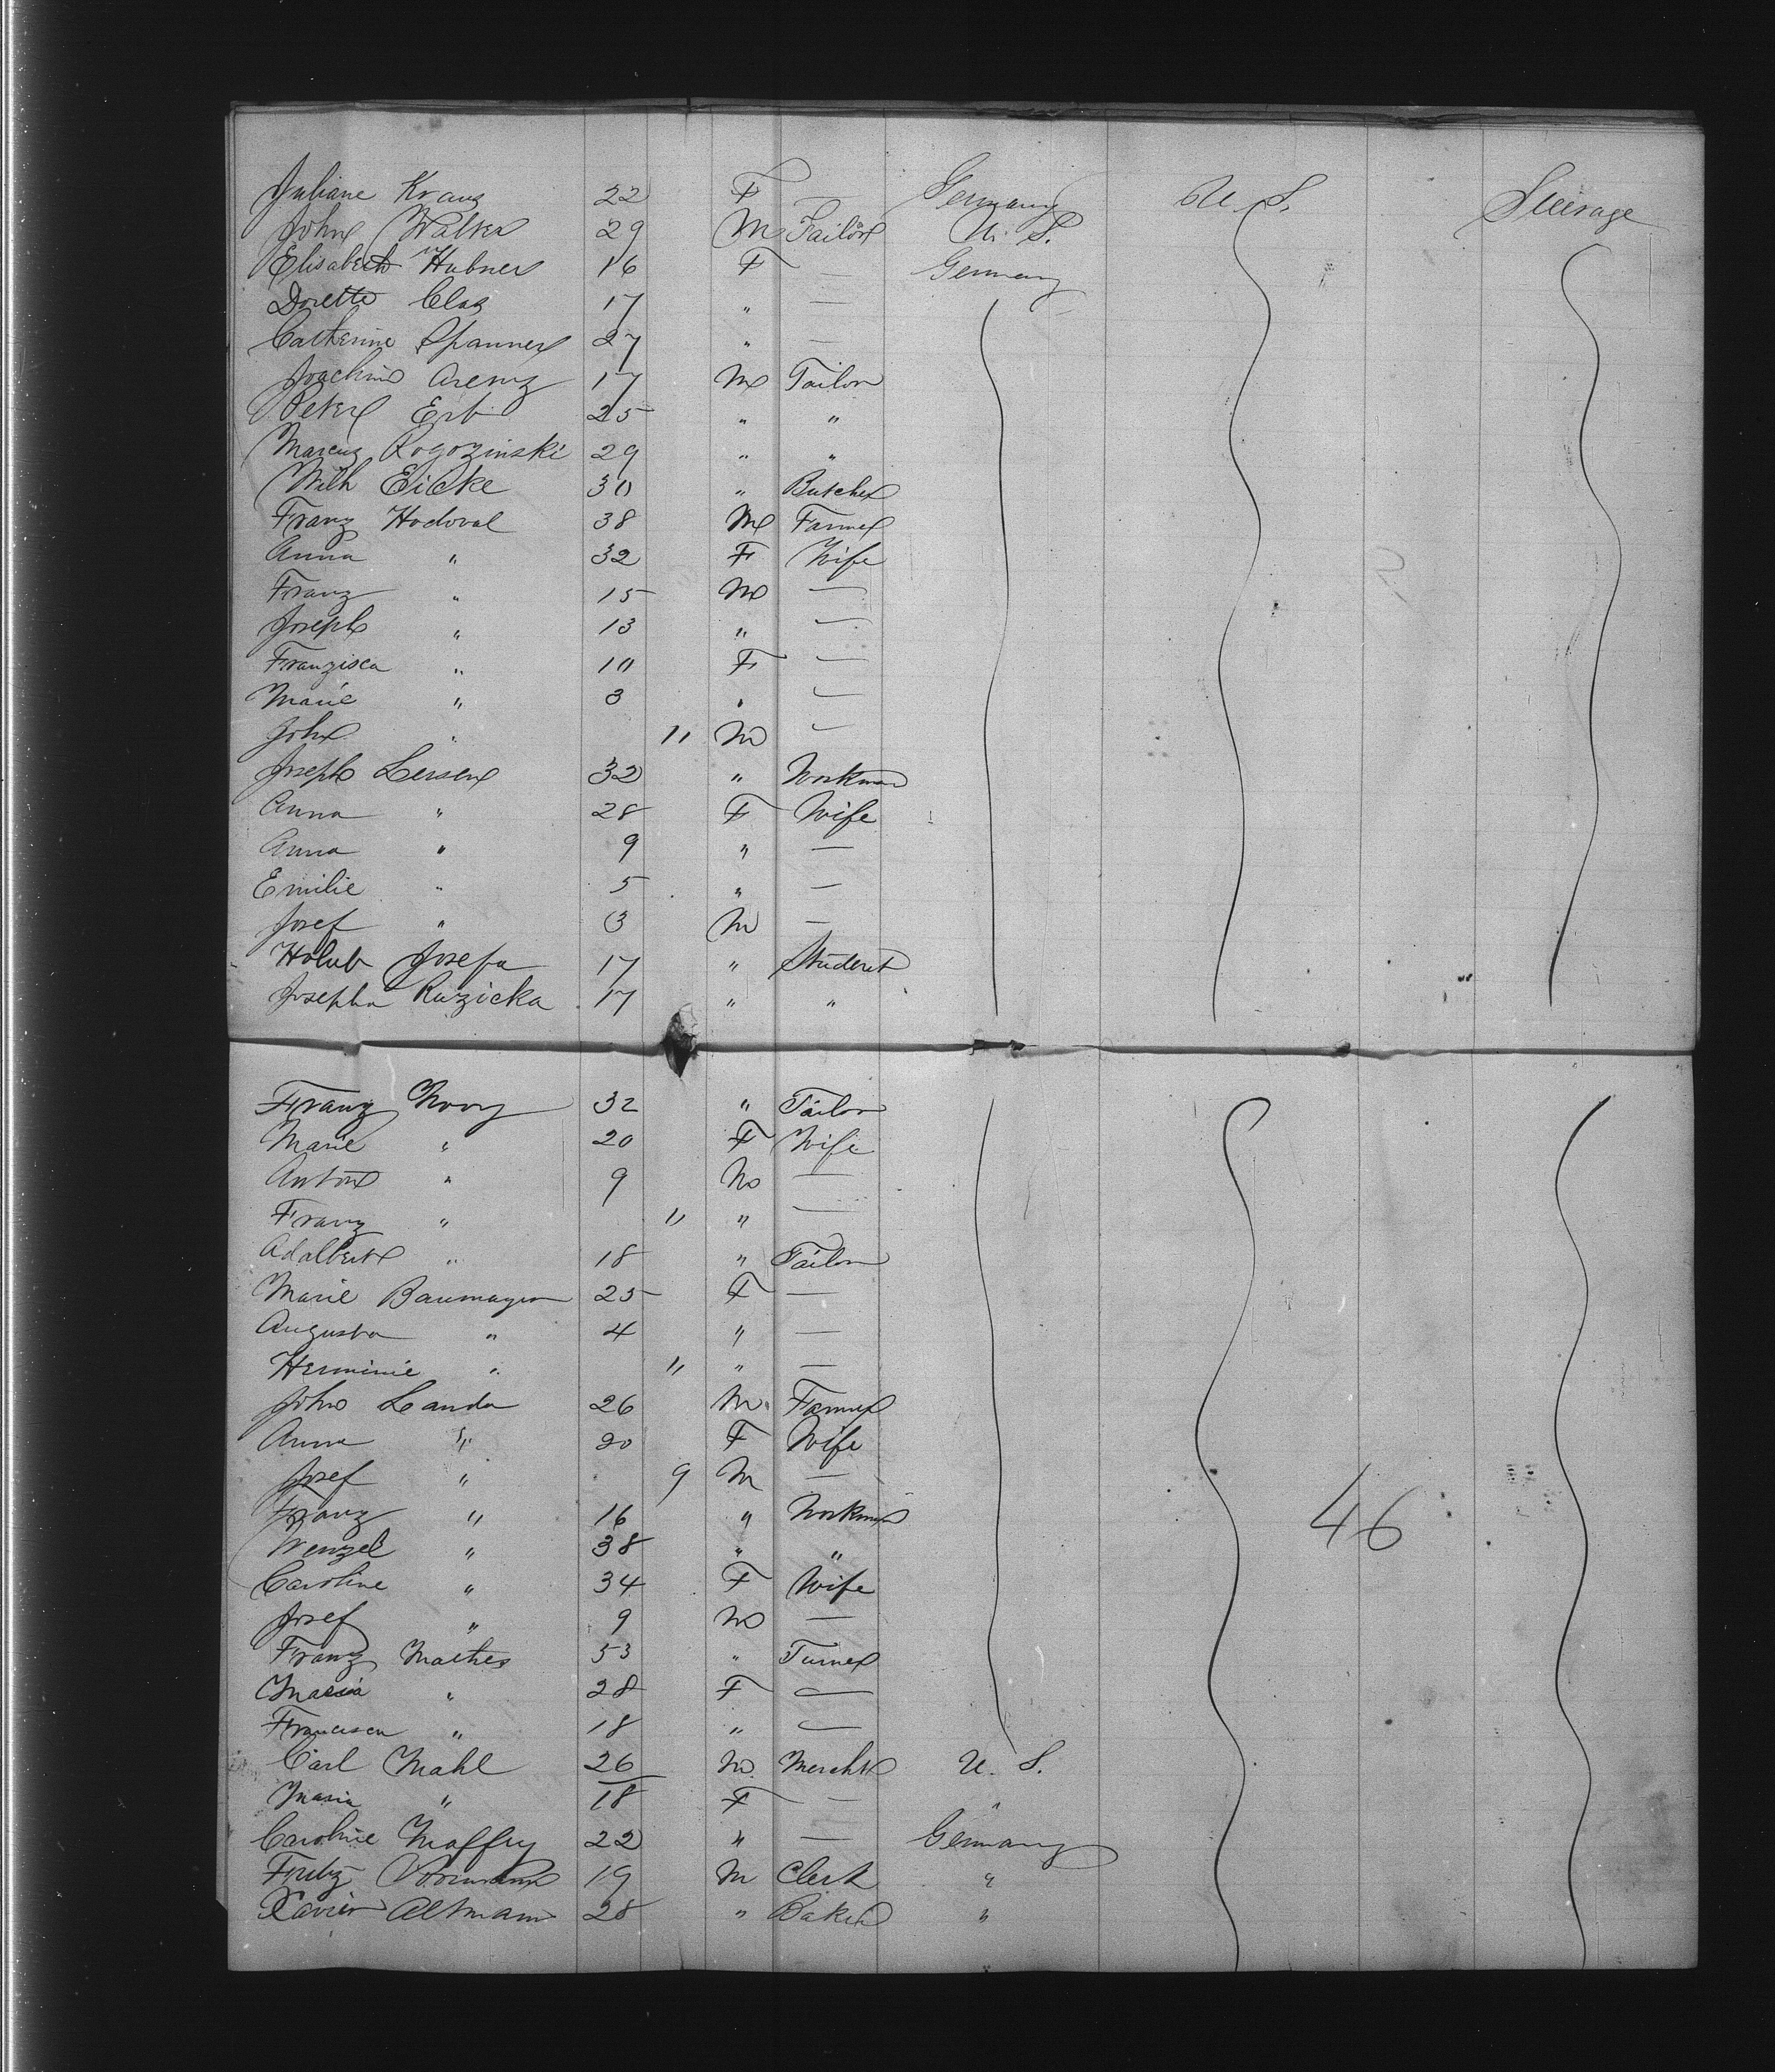 Juliane Kraus 22 F — Germany U. S. Steerage
John Walter 29 M Tailor U. S.
Elisabeth Hubner 16 F — Germany
Dorette Claz 17 " —
Catherine Spanner 27 " —
Joachim Arenz 17 M Tailor
Peter Erb 25 " "
Marcus Rogozinski 29 " "
Wilh Eicke 30 " Butcher
Franz Hodoval 38 M Farmer
Anna " 32 F Wife
Franz " 15 M —
Joseph " 13 " —
Franzisca " 10 F —
Marie " 3 " —
John " 11 M —
Joseph Lersen 32 " Workman
Anna " 28 F Wife
Anna " 9 " —
Emilie " 5 " —
Josef " 3 M —
Holub Josefa 17 " Student
Josepha Ruzicka 17 " "
Franz Novy 32 " Tailor
Marie " 20 F Wife
Anton " 9 M —
Franz " 11 " —
Adalbert " 18 " Tailor
Marie Baumayer 25 F —
Augusta " 4 " —
Herminie " 11 " —
John Landa 26 M. Farmer
Anna " 20 F Wife
Josef " 9 M —
Franz " 16 " Workman 46
Wenzel " 38 " "
Caroline " 34 F Wife
Josef " 9 M —
Franz Mathes 53 " Turner
Maria " 28 F —
Francisca " 18 " —
Carl Mahl 26 M. Mercht U. S.
Maria " 18 F — "
Caroline Maffry 22 " — Germany
Fritz 19 M Clerk "
Xavier Altmann 28 " Baker "